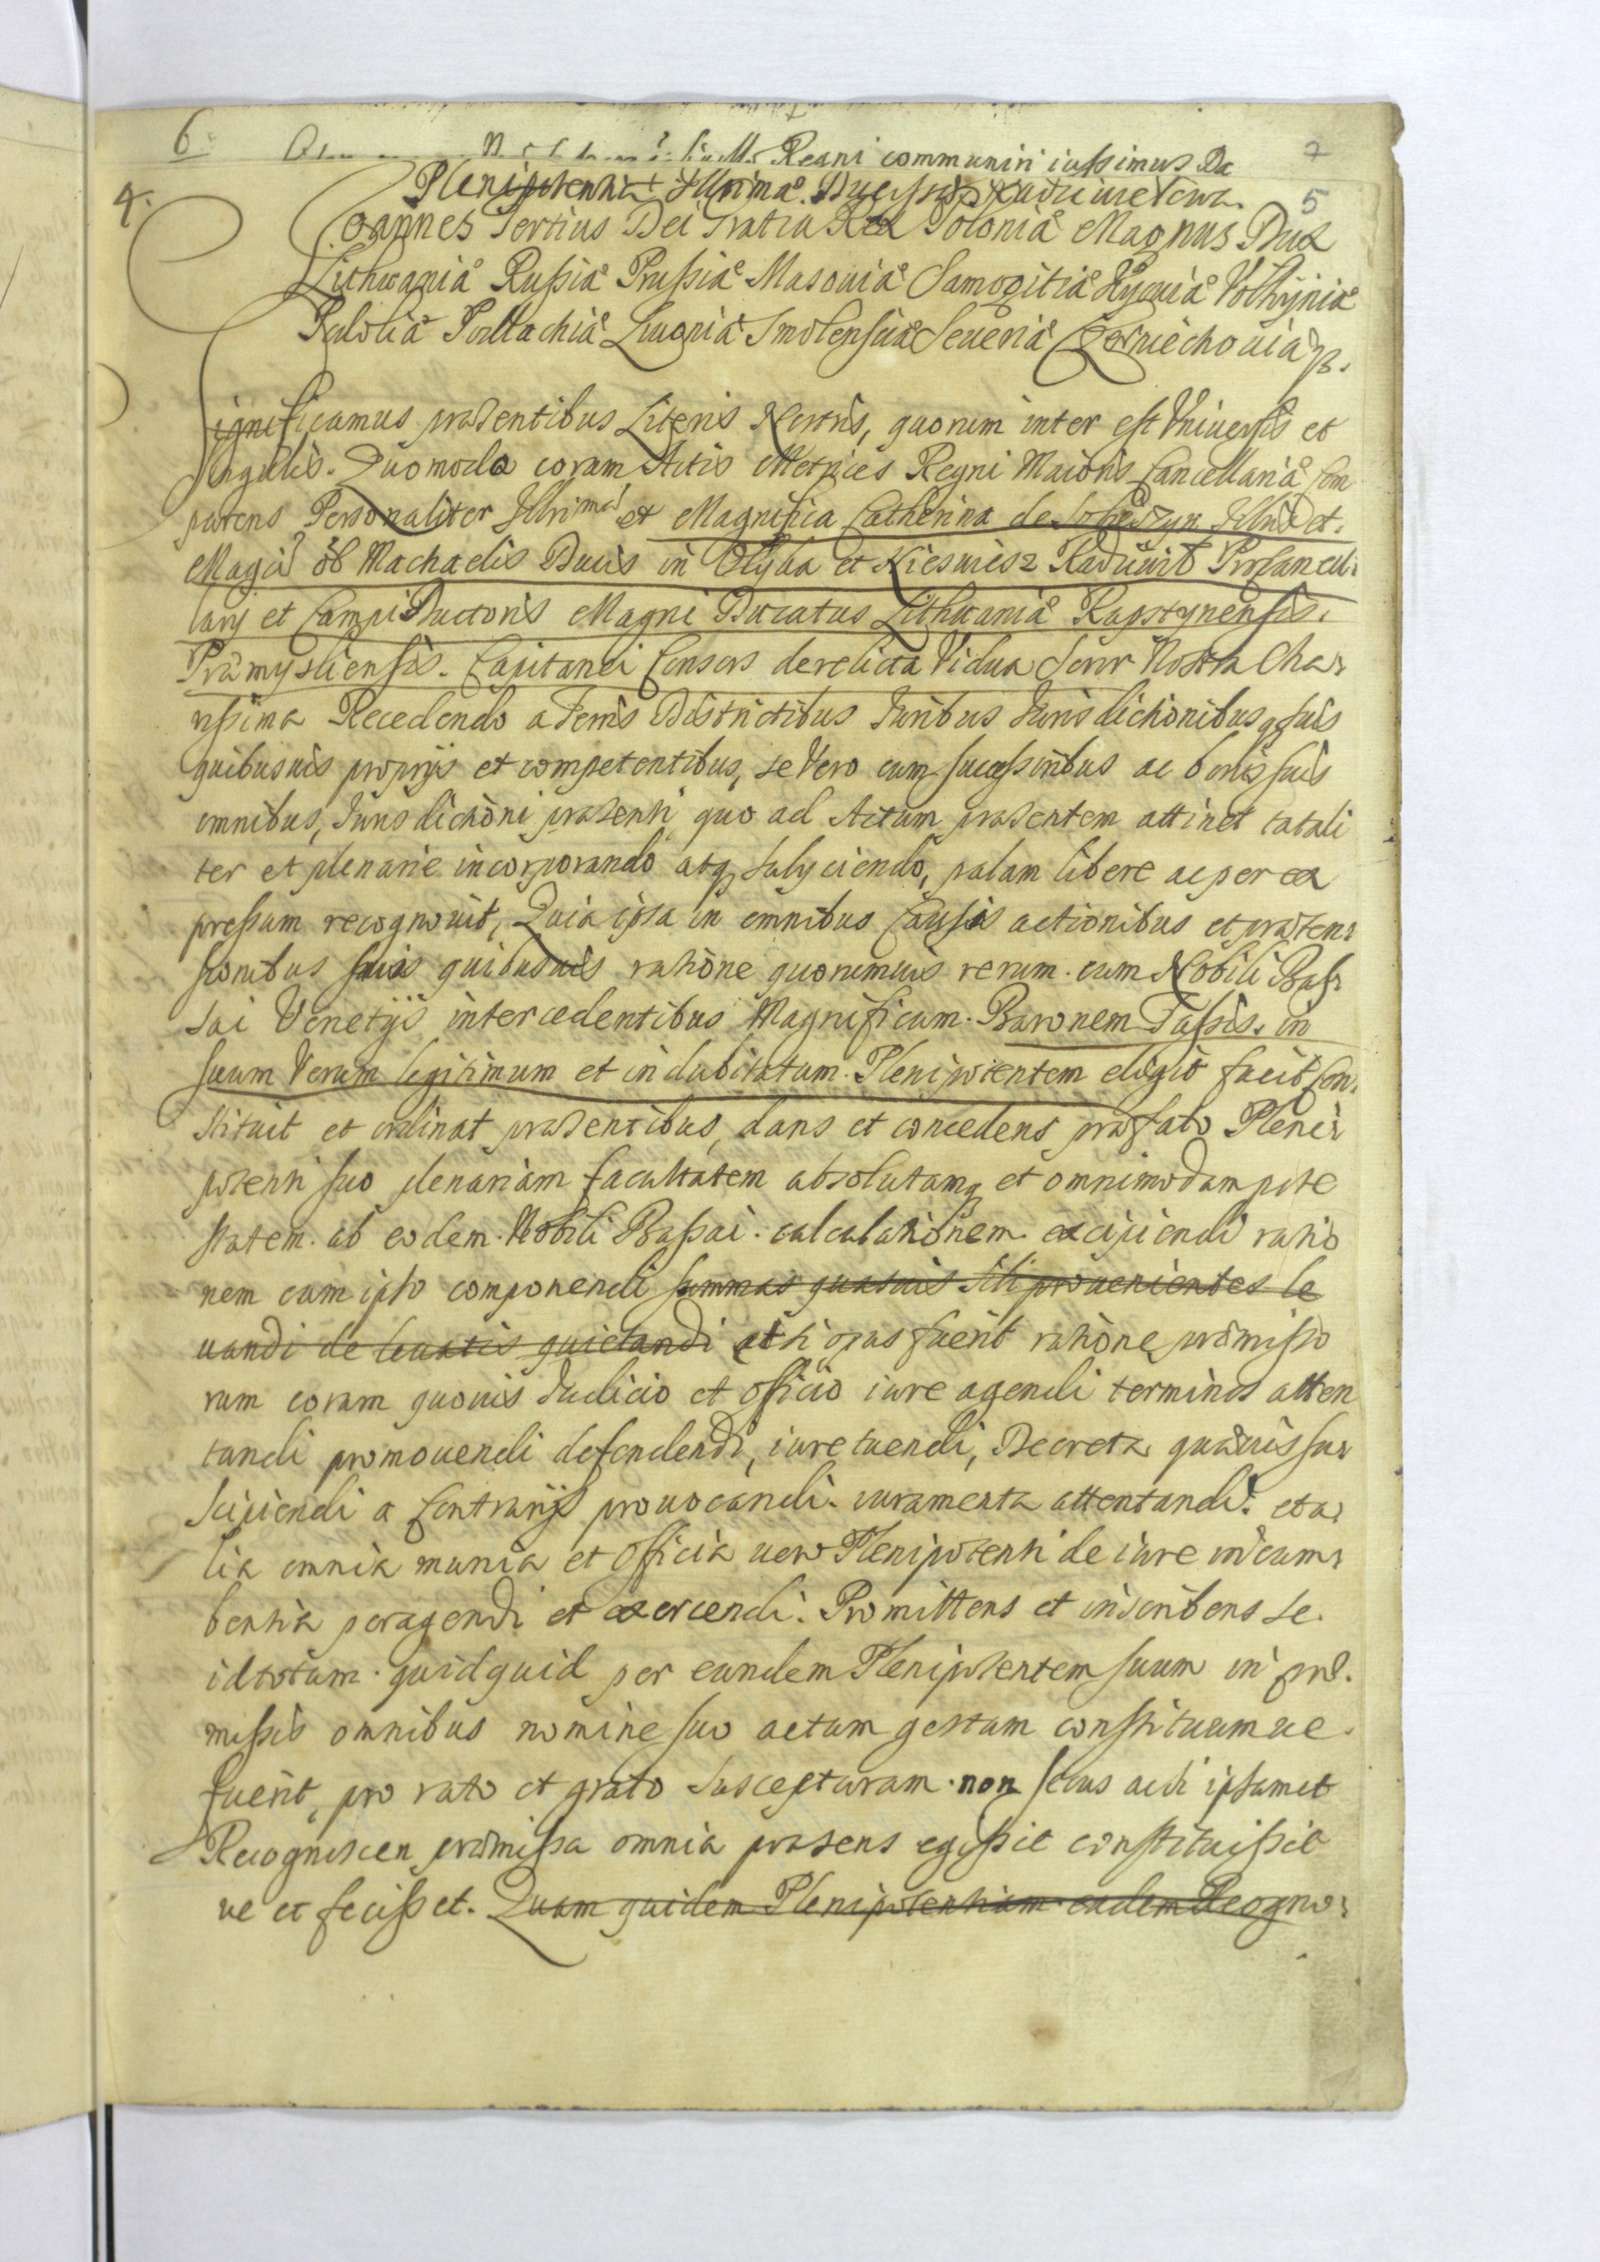 6
7
Regni communiri iussimus Da
4.
Plenipotentia Illrimæ Ducissæ Radziwiłowa.
5
Joannes Tertius Dei Gratia Rex Poloniæ Magnus Dux
Lithuaniæ Russiæ Prussiæ Masouiæ Samogitiæ Kyouiæ Volhyniæ
Podoliæ Podlachiæ Liuoniæ Smolensciæ Seueriæ Czerniechouiæq3.
Significamus præsentibus Literis Nostris, quorum inter est Vniuersis et
Singulis. Quomodo coram Actis Metrices Regni Maioris Cancellariæ Com
parens Personaliter Illrima et Magnifica Catherina de Sobieszyn Illris et
Magci ol Machaelis Ducis in Olyka et Niesuiesz Radziwił Procancell:
larij et Campi Ductoris Magni Ducatus Lithuaniæ
Præmysliensis. Capitanei Consors derelicta Vidua Soror Nostra Cha:
rissima Recedendo a Terris Districtibus Iuribus Iurisdictionibusq suis
quibusuis proprijs et competentibus, se Vero cum successoribus ac bonis suis
omnibus, Iurisdictioni præsenti quo ad Actum præsentem attinet totali
ter et plenarie incorporando atq subijciendo, palam libere ac per ex
pressum recognouit, Quia ipsa in omnibus Causis actionibus et præten:
sionibus suis quibusuis ratione quorumuis rerum cum Nobili Bas:
sai Venetijs intercedentibus Magnificum Baronem Tassis. in
suum Verum legitimum et indubitatum Plenipotentem eligit facit Con:
stituit et ordinat præsentibus, dans et concedens præfato Pleni:
potenti suo plenariam facultatem absolutamq et omnimodam pote
statem. ab eodem Nobili Bassai calculationem excipiendi ratio
nem cum ipso componendi summas quasuis sibi prouenientes le
uandi de leuatis quietandi et si opus fuerit ratione præmisso
rum coram quouis Iudicio et Officio iure agendi terminos atten
tandi promouendi defendendi, iure tuendi, Decreta quæuis sus
scipiendi a Contrarijs prouocandi. iuramenta attentandi. et a:
lia omnia munia et Officia uero Plenipotenti de iure incum:
bentia peragendi et exercendi. Promittens et inscribens se.
id totum quidquid per eundem Plenipotentem suum in præ.
missis omnibus nomine suo actum gestum constitutumue.
fuerit, pro rato et grato suscepturam non secus ac si ipsamet
Recognoscen præmissa omnia præsens egissit constituissit
ue et fecisset. Quam quidem Plenipotentiam eadem Recogno: